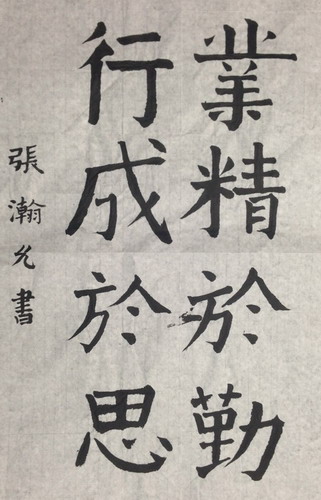 業精於勤
行成於思
張瀚允書